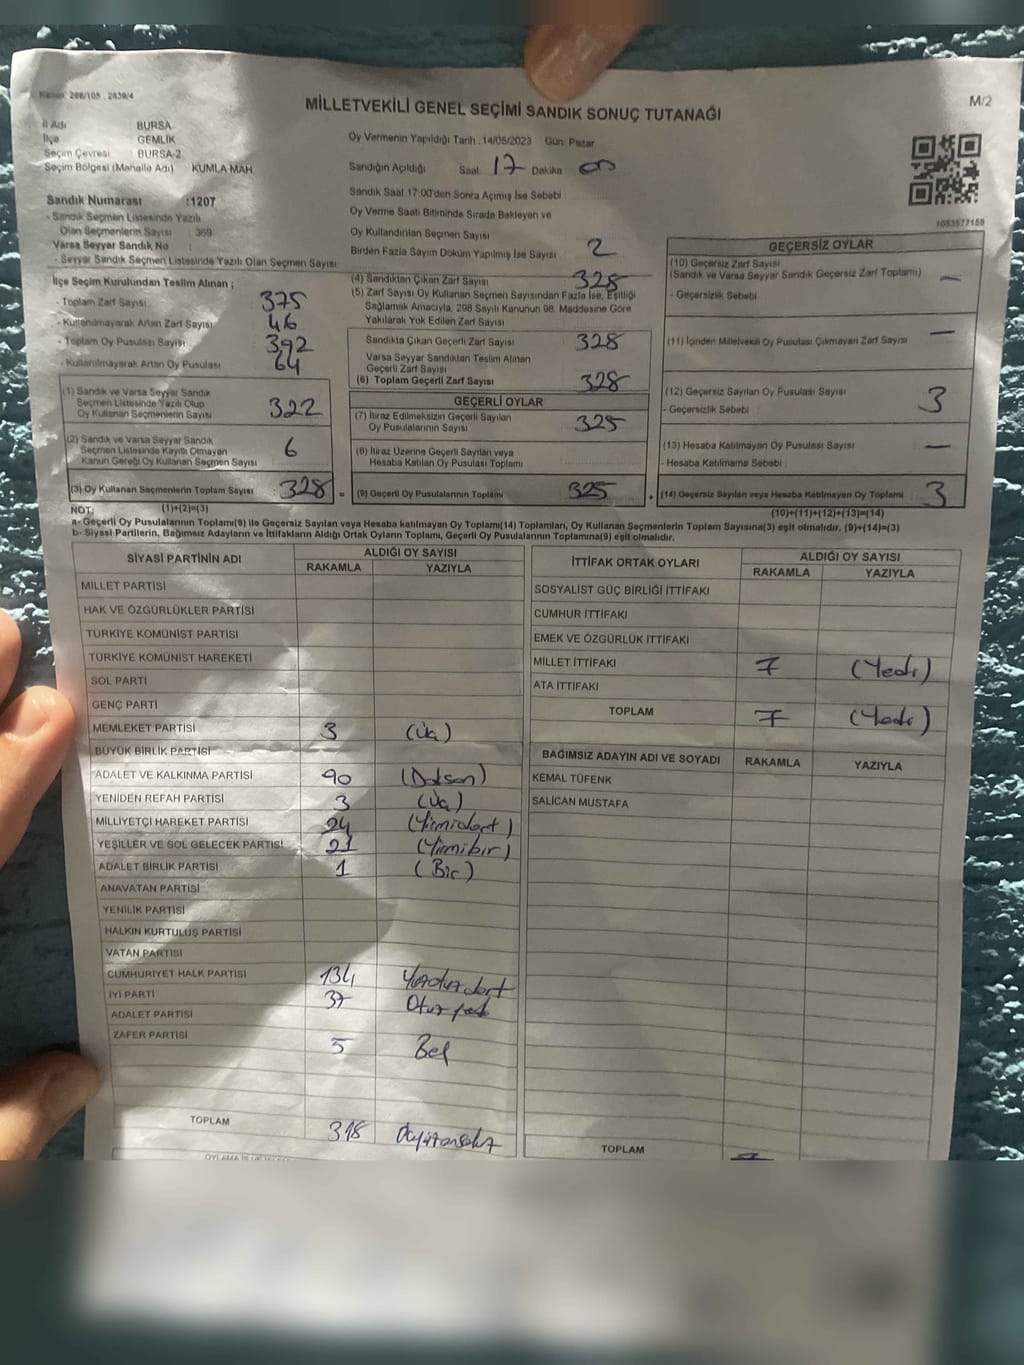 Kanun: 298/105 . 2839/4
M/2
MİLLETVEKİLİ GENEL SEÇİMİ SANDIK SONUÇ TUTANAĞI
İl Adı BURSA
İlçe GEMLİK
Seçim Çevresi BURSA-2
Seçim Bölgesi (Mahalle Adı) KUMLA MAH
Sandık Numarası :1207
- Sandık Seçmen Listesinde Yazılı
Olan Seçmenlerin Sayısı : 369
Varsa Seyyar Sandık No :
- Seyyar Sandık Seçmen Listesinde Yazılı Olan Seçmen Sayısı
İlçe Seçim Kurulundan Teslim Alınan ;
- Toplam Zarf Sayısı 375
- Kullanılmayarak Artan Zarf Sayısı 46
- Toplam Oy Pusulası Sayısı 392
- Kullanılmayarak Artan Oy Pusulası 64
(1) Sandık ve Varsa Seyyar Sandık
Seçmen Listesinde Yazılı Olup
Oy Kullanan Seçmenlerin Sayısı 322
(2) Sandık ve Varsa Seyyar Sandık
Seçmen Listesinde Kayıtlı Olmayan
Kanun Gereği Oy Kullanan Seçmen Sayısı 6
(3) Oy Kullanan Seçmenlerin Toplam Sayısı : 328 =
Oy Vermenin Yapıldığı Tarih : 14/05/2023 Gün: Pazar
Sandığın Açıldığı Saat 17 Dakika 00
Sandık Saat 17:00'den Sonra Açımış İse Sebebi
Oy Verme Saati Bitiminde Sırada Bekleyen ve
Oy Kullandırılan Seçmen Sayısı
Birden Fazla Sayım Döküm Yapılmış İse Sayısı 2
(4) Sandıktan Çıkan Zarf Sayısı 328
(5) Zarf Sayısı Oy Kullanan Seçmen Sayısından Fazla İse, Eşitliği
Sağlamak Amacıyla, 298 Sayılı Kanunun 98. Maddesine Göre
Yakılarak Yok Edilen Zarf Sayısı
Sandıkta Çıkan Geçerli Zarf Sayısı 328
Varsa Seyyar Sandıktan Teslim Alınan
Geçerli Zarf Sayısı
(6) Toplam Geçerli Zarf Sayısı 328
GEÇERLİ OYLAR
(7) İtiraz Edilmeksizin Geçerli Sayılan
Oy Pusulalarının Sayısı 325
(8) İtiraz Üzerine Geçerli Sayılan veya
Hesaba Katılan Oy Pusulası Toplamı
(9) Geçerli Oy Pusulalarının Toplamı 325 +
1083577155
GEÇERSİZ OYLAR
(10) Geçersiz Zarf Sayısı
(Sandık ve Varsa Seyyar Sandık Geçersiz Zarf Toplamı) —
- Geçersizlik Sebebi
(11) İçinden Milletvekili Oy Pusulası Çıkmayan Zarf Sayısı —
(12) Geçersiz Sayılan Oy Pusulası Sayısı 3
- Geçersizlik Sebebi
(13) Hesaba Katılmayan Oy Pusulası Sayısı —
- Hesaba Katılmama Sebebi
(14) Geçersiz Sayılan veya Hesaba Katılmayan Oy Toplamı 3
NOT: (1)+(2)=(3) (10)+(11)+(12)+(13)=(14)
a- Geçerli Oy Pusulalarının Toplamı(9) ile Geçersiz Sayılan veya Hesaba katılmayan Oy Toplamı(14) Toplamları, Oy Kullanan Seçmenlerin Toplam Sayısına(3) eşit olmalıdır. (9)+(14)=(3)
b- Siyasi Partilerin, Bağımsız Adayların ve İttifakların Aldığı Ortak Oyların Toplamı, Geçerli Oy Pusulalarının Toplamına(9) eşit olmalıdır.
SİYASİ PARTİNİN ADI ALDIĞI OY SAYISI
RAKAMLA YAZIYLA
MİLLET PARTİSİ
HAK VE ÖZGÜRLÜKLER PARTİSİ
TÜRKİYE KOMÜNİST PARTİSİ
TÜRKİYE KOMÜNİST HAREKETİ
SOL PARTİ
GENÇ PARTİ
MEMLEKET PARTİSİ 3 (Üç)
BÜYÜK BİRLİK PARTİSİ
ADALET VE KALKINMA PARTİSİ 90 (Doksan)
YENİDEN REFAH PARTİSİ 3 (Üç)
MİLLİYETÇİ HAREKET PARTİSİ 24 (Yirmidört)
YEŞİLLER VE SOL GELECEK PARTİSİ 21 (Yirmibir)
ADALET BİRLİK PARTİSİ 1 (Bir)
ANAVATAN PARTİSİ
YENİLİK PARTİSİ
HALKIN KURTULUŞ PARTİSİ
VATAN PARTİSİ
CUMHURİYET HALK PARTİSİ 134
İYİ PARTİ 37
ADALET PARTİSİ
ZAFER PARTİSİ 5 Beş
TOPLAM 318
İTTİFAK ORTAK OYLARI ALDIĞI OY SAYISI
RAKAMLA YAZIYLA
SOSYALİST GÜÇ BİRLİĞİ İTTİFAKI
CUMHUR İTTİFAKI
EMEK VE ÖZGÜRLÜK İTTİFAKI
MİLLET İTTİFAKI 7 (Yedi)
ATA İTTİFAKI
TOPLAM 7 (Yedi)
BAĞIMSIZ ADAYIN ADI VE SOYADI RAKAMLA YAZIYLA
KEMAL TÜFENK
SALİCAN MUSTAFA
TOPLAM